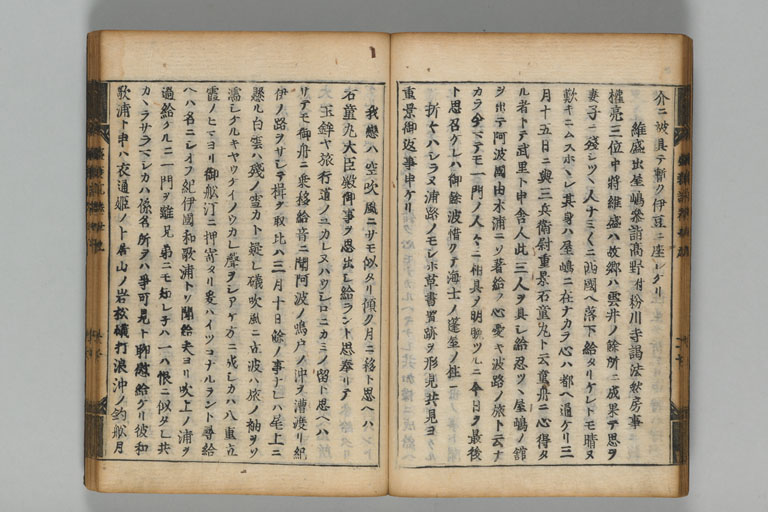 介ニ被具テ暫ク伊豆ニ座シケリ
維盛出屋嶋參詣高野付粉川寺謁法然房事
權亮三位中將維盛ハ故郷ハ雲井ノ餘所ニ成果テ思ヲ
妻子ニ殘シツヽ人ナミ〳〵ニ西國ヘ落下給タリケレトモ晴ヌ
歎キニムスホヽレ其身ハ屋嶋ニ在ナカラ心ハ都ヘ通ケリ三
月十五日ニ與三兵衛尉重景石童丸ト云童舟ニ心得タ
ル者トテ武里ト申舎人此三人ヲ具シ給忍ツヽ屋嶋ノ館
ヲ出テ阿波國由木浦ニソ著給フ心愛ヤ波路ノ旅ト云ナ
カラ今マテモ一門ノ人々ニ相具ノ明晩ツルニ今日ヲ最後
ト思召ケレハ御餘波惜クテ海士ノ蓬屋ノ柱ニ
折々ハシラヌ浦路ノモシホ草書置跡ヲ形見共見ヨ
重景御返事申ケリ
我戀ハ空吹風ニサモ似タリ傾ク月ニ移ト思ヘハ
石童丸大臣殿御事ヲ思出シ給ラント思奉リテ
玉鉾ヤ旅行道ノユカレヌハウシロニカミノ留ト思ヘハ
リテモ御舟ニ乗移給音ニ聞阿波ノ鳴戸ノ沖ヲ漕渡リ紀
伊ノ路ヲサシテ楫ヲ取比ハ三月十日餘ノ事ナレハ尾上ニ
懸ル白雲ハ殘ノ雪カト疑レ礒吹風ニ立波ハ旅ノ袖ヲソ
濡シケル
霞ノヒマヨリ御舩汀ニ押寄タリ爰ハイツコナルラント尋給
ヘハ名ニシオフ紀伊國和歌浦トソ聞給夫ヨリ吹上ノ浦ヲ
過給ケルニ一門ヲ離見弟ニモ知レ子ハ一ハ恨ニ似タレ共
カヽラサラマシカハ係名所ヲハ爭可見ト聊慰給ケリ彼和
歌浦ト申ハ衣通姫ノト居山ノ岩松礒打浪沖ノ釣舩月